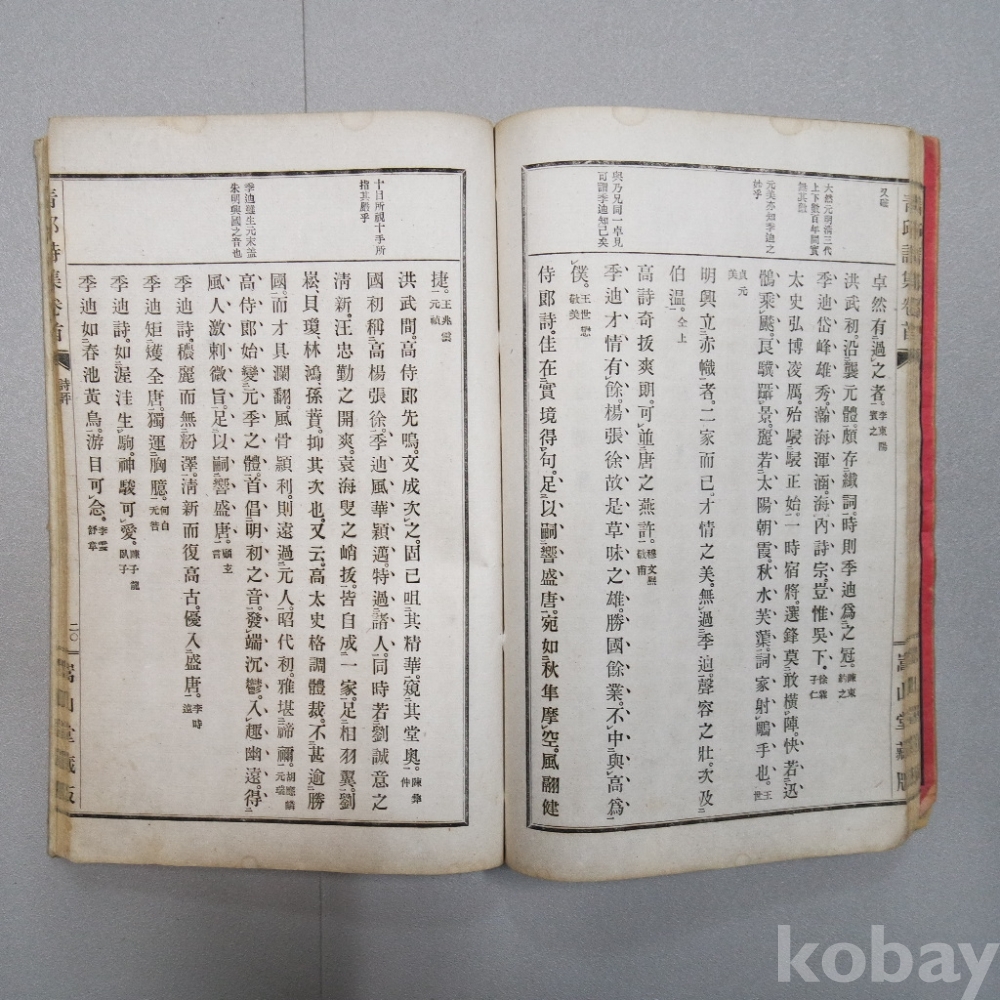 又確
大然元明清三代
上下數百年間實
無其數
元美亦知季迪之
與乃兄同一卓見
可謂季迪知己矣
卓然有過之者。李東陽賓之
洪武初。沿襲元體。頗存纖詞。時則季迪爲之冠。陳束約之
季迪岱峰雄秀。瀚海渾涵。海內詩宗。豈惟吳下。徐泰子仁
太史弘博凌厲。殆駸駸正始。一時宿將選鋒。莫敢橫陣。快若迅
鶻乘颷。良驥躡景。麗若太陽朝霞。秋水芙蕖。詞家射鵰手也。王世
貞元美
明興立赤幟者。二家而已。才情之美。無過季迪。聲容之壯。次及
伯溫。仝上
高詩奇拔爽朗。可並唐之燕許。穆文熙敬甫
季迪才情有餘。楊張徐故是草味之雄。勝國餘業。不中與高爲
僕。王世懋敬美
侍郎詩。佳在實境得句。足以嗣響盛唐。宛如秋隼摩空。風翮健
十目所視十手所
指其嚴乎
季迪雖生元末蓋
朱明興國之音也
捷。王兆雲元禎
洪武間。高侍郎先鳴。文成次之。固已咀其精華。窺其堂奧。陳鋒仲
國初稱高楊張徐。季迪風華穎邁。特過諸人。同時若劉誠意之
清新。汪忠勤之開爽。袁海叟之峭拔。皆自成一家。足相羽翼。劉
崧。貝瓊。林鴻。孫蕡。抑其次也。又云。高太史格調體裁。不甚逾勝
國。而才具瀾翻。風骨穎利。則遠過元人。昭代初。雅堪禘禰。胡應麟元瑞
高侍郎始變元季之體。首倡明初之音。發端沉鬱。入趣幽遠。得
風人激刺微旨。足以嗣響盛唐。顧玄言
季迪詩。穠麗而無粉澤。清新而復高古。優入盛唐。李時遠
季迪矩矱全唐。獨運胸臆。何白元咎
季迪詩。如渥洼生駒。神駿可愛。陳子龍臥子
季迪如春池黃鳥。游目可念。李雯舒章
青邱詩集卷首
詩評
二〇
嵩山堂藏版
kobay